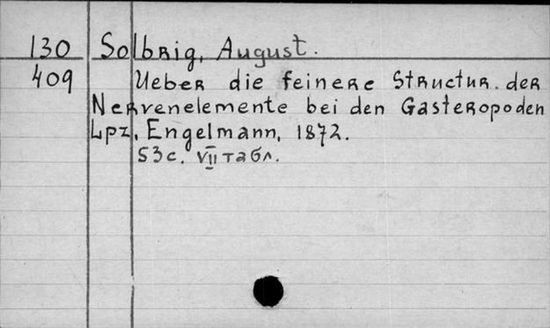 130 Solbrig, August.
409 Ueber die feinere Structur der
Nervenelemente bei den Gasteropoden
Lpz, Engelmann, 1872.
53c. VII табл.